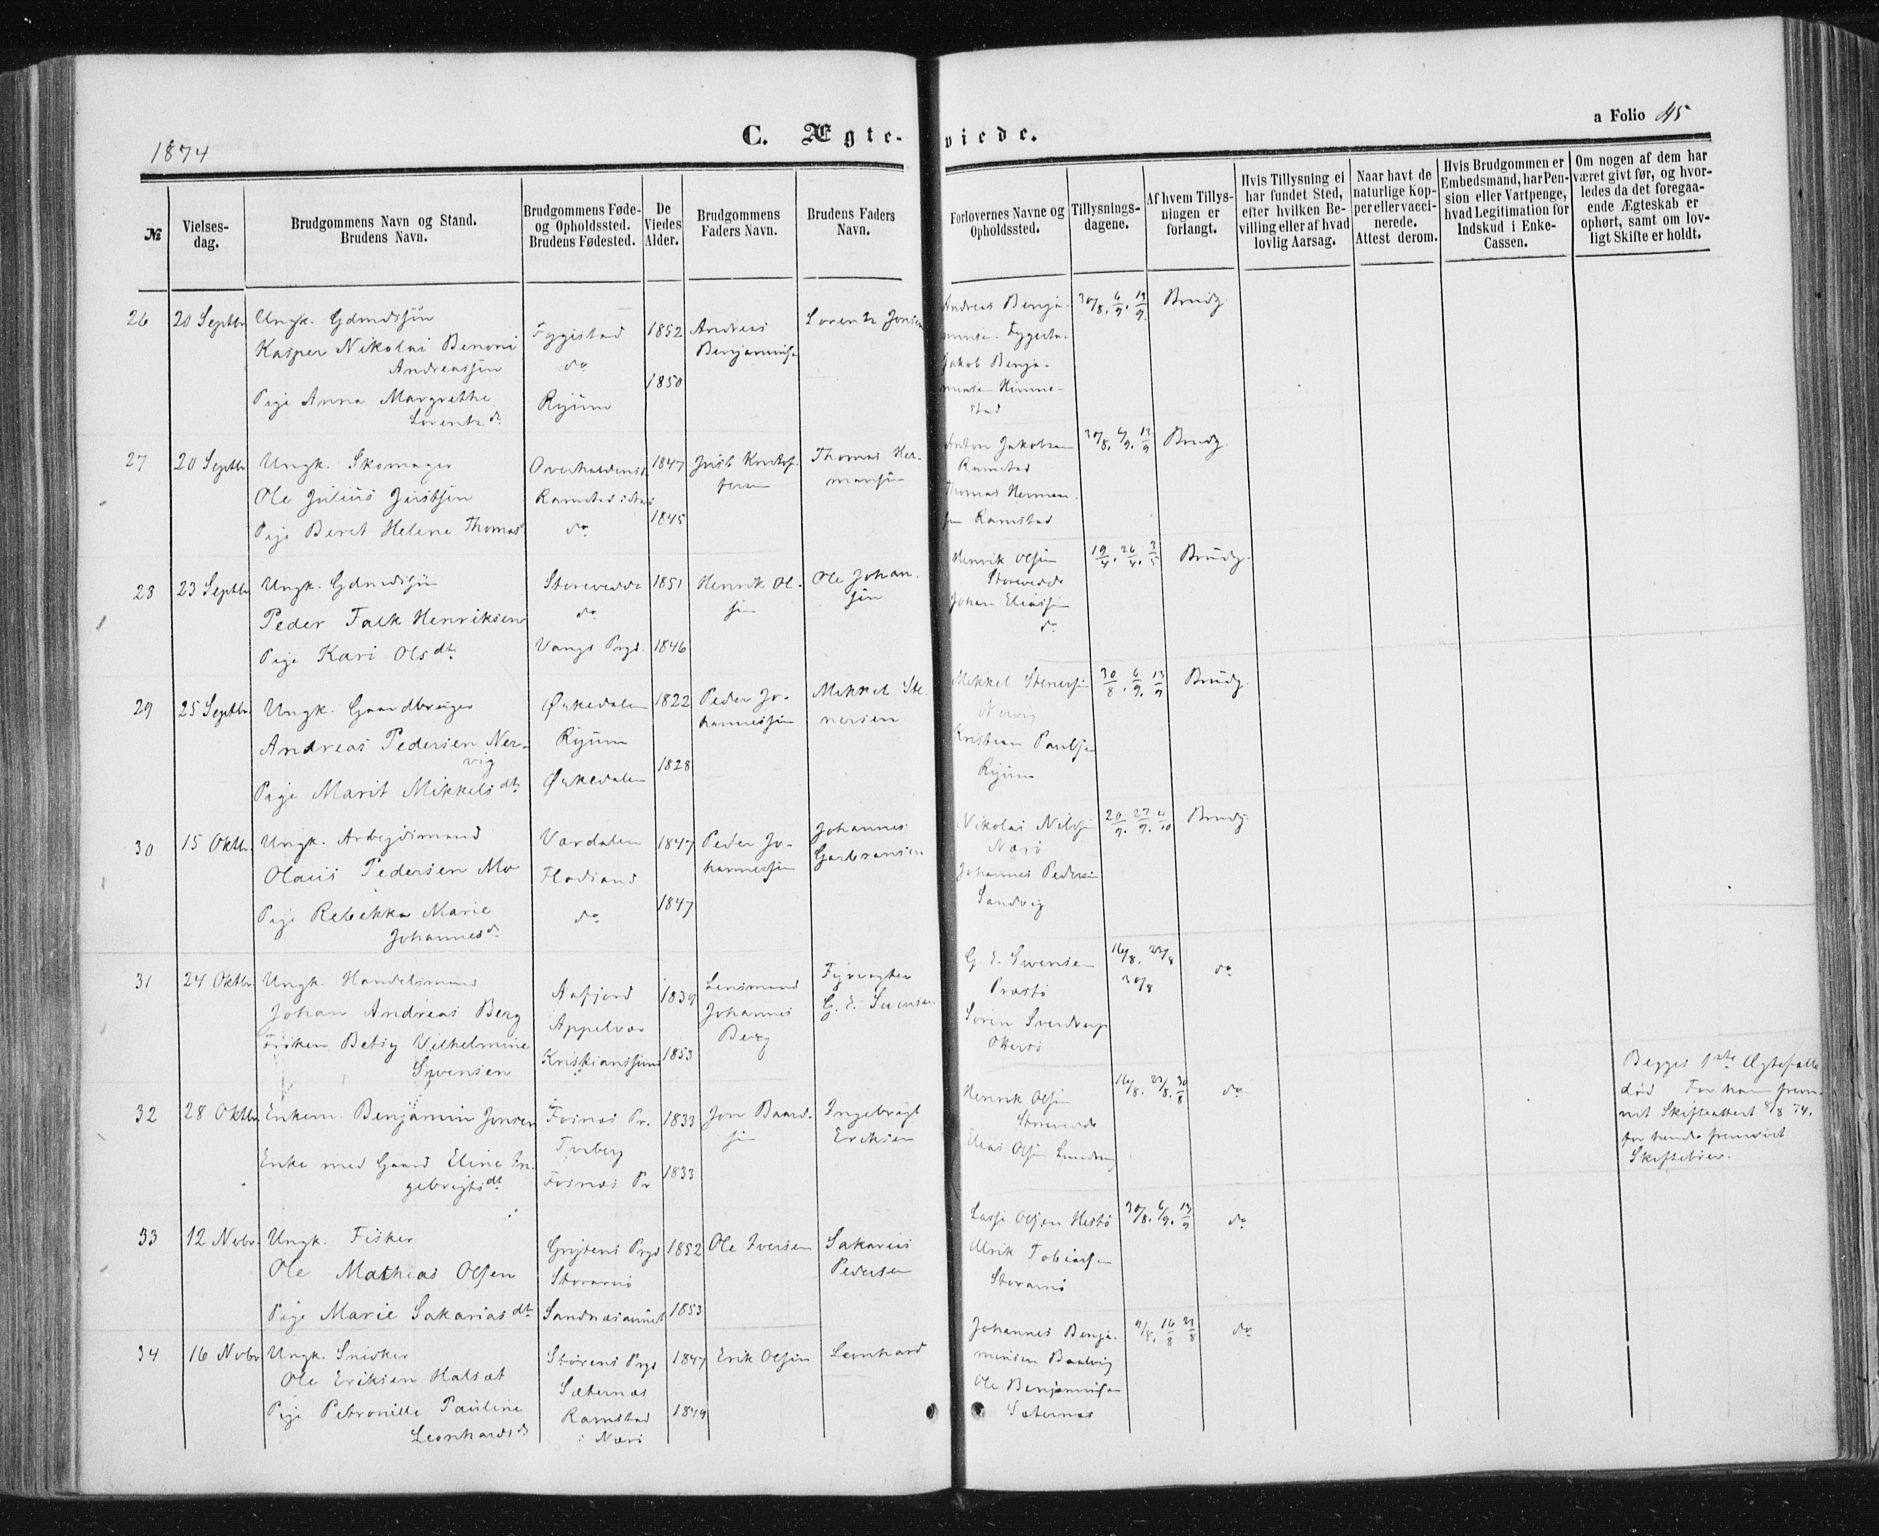 1874
C. Ægte-viede.
a Folio 45
№
Vielses-
dag.
Brudgommens Navn og Stand.
Brudens Navn.
Brudgommens Føde-
og Opholdssted.
Brudens Fødested.
De
Viedes
Alder.
Brudgommens
Faders Navn.
Brudens Faders
Navn.
Forlovernes Navne og
Opholdssted.
Tillysnings-
dagene.
Af hvem Tillys-
ningen er
forlangt.
Hvis Tillysning ei
har fundet Sted,
efter hvilken Be-
villing eller af hvad
lovlig Aarsag.
Naar havt de
naturlige Kop-
per eller vacci-
nerede.
Attest derom.
Hvis Brudgommen er
Embedsmand, har Pen-
sion eller Vartpenge,
hvad Legitimation for
Indskud i Enke-
Cassen.
Om nogen af dem har
været givt før, og hvor-
ledes da det foregaa-
ende Ægteskab er
ophørt, samt om lov-
ligt Skifte er holdt.
26
20 Septbr
Ungk. Gdmdssøn
Kasper Nikolai Benoni
Andreassen
Pige Anna Margrethe
Lorentz d.
do
Ryum
1852
1850
Andreas
Lorentz Jonsen
Andreas Benja-
Jakob Benja-
stad
30/8. 6/9. 13/9.
Brudg.
27
20 Septbr
Ungk. Skomager
Ole Julius Justsen
Pige Beret Helene Thomas
Ramstad
do
1847
1845
Thomas Her-
mansen
Anton Jakobsen
Ramstad
Thomas Herman-
sen Ramstad
30/8. 6/9. 13/9
Brudg.
28
23 Septbr
Ungk. Gdmdssøn
Peder Falk Henriksen
Pige Kari Olsdt.
Storevedde
do
Vangs Prgd.
1851
1846
Henrik Ol-
sen
Ole Johan-
sen
Henrik Olsen
Storevedde
Johan Eliassen
do
19/4. 26/4. 3/5
Brudg.
29
25 Septbr.
Ungk. Gaardbruger
Andreas Pedersen Ner-
vig
Pige Marit Mikkelsdt.
Ørkedalen
Ryum
Ørkedalen
1822
1828
Peder Jo-
hannessen
Mikkel Ste-
nersen
Mikkel Stenersen
Nervig
Kristian Paulsen
Ryum
30/8. 6/9. 13/9
Brudg.
30
15 Oktbr.
Ungk. Arbejdsmand
Olaus Pedersen Mo
Pige Rebekka Marie
Johannesd.
Værdalen
do
1847
1847
Peder Jo-
hannessen
Johannes
Nikolai Nilsen
Nærø
Johannes Pedersen
Sandvig
20/9. 27/9. 4/10
Brudg.
31
24 Oktbr.
Ungk. Handelsmand
Johan Andreas Berg
Frøken Betsy Vilhelmine
Svensen
Aafjord
Appelvær
Kristianssund
1839
1853
Lensmand
Johannes
Berg
Fyrvogter
G. E. Svensen
G. E. Svensen
Præstø
Søren Sverdrup
Otterø
16/8. 23/8
30/8
do
32
28 Oktbr
Enkem. Benjamin Jonsen
Enke med Gaard Eline In-
gebrigtsdt.
Fosnæs Pr.
Fosnæs Pr
1833
1833
Jon Baard-
sen
Ingebrigt
Eriksen
Henrik Olsen
Storevedde
Elias Olsen
16/8. 23/8. 30/8
do
Begges 1ste Ægtefælle
død For ham frem-
vist Skifteattest 8/8 74.
for hende fremvist
Skiftebrev.
33
12 Novbr.
Ungk. Fisker
Ole Mathias Olsen
Pige Marie Sakariasdt.
Prgd
1852
1853
Ole Iversen
Sakarias
Pedersen
Ulrik Tobiassen
30/8. 6/9. 13/9
do
34
16 Novbr
Ungk. Snedker
Ole Eriksen Halsæt
Pige Petronille Pauline
Leonhardsd
Størens Prgd
Sæternæs
Ramstad
i Nærø
1847
1849
Erik Olsen
Leonhard
Johannes Benja-
minsen
Ole Benjaminsen
Sæternæs
9/8. 16/8 23/8
do